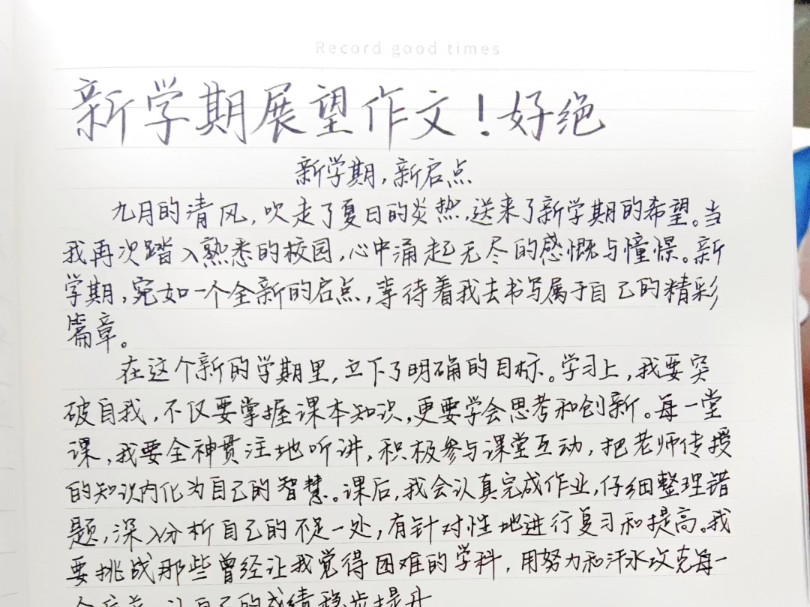 Record good times
新学期展望作文！好绝
新学期，新启点
九月的清风，吹走了夏日的炎热，送来了新学期的希望。当
我再次踏入熟悉的校园，心中涌起无尽的感慨与憧憬。新
学期，宛如一个全新的启点，等待着我去书写属于自己的精彩
篇章。
在这个新的学期里，立下了明确的目标。学习上，我要突
破自我，不仅要掌握课本知识，更要学会思考和创新。每一堂
课，我要全神贯注地听讲，积极参与课堂互动，把老师传授
的知识内化为自己的智慧。课后，我会认真完成作业，仔细整理错
题，深入分析自己的不足之处，有针对性地进行复习和提高。我
要挑战那些曾经让我觉得困难的学科，用努力和汗水攻克每一
让自己的成绩稳步提升